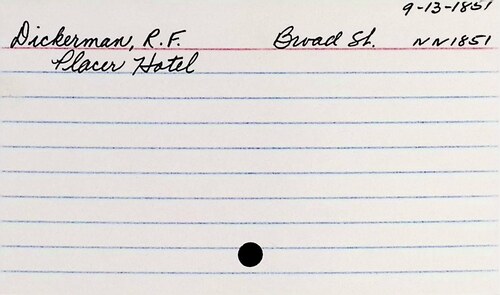 9-13-1851
Dickerman, R.F. Broad St. NN1851
Placer Hotel